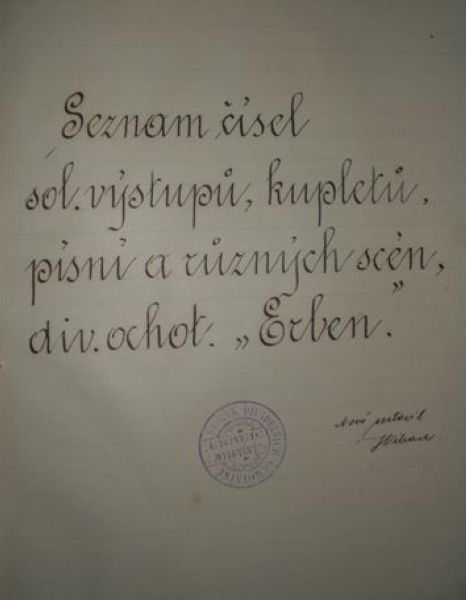 Seznam čísel
sol. výstupů, kupletů,
písní a různých scén,
div. ochot. „Erben.“
Nově sestavil